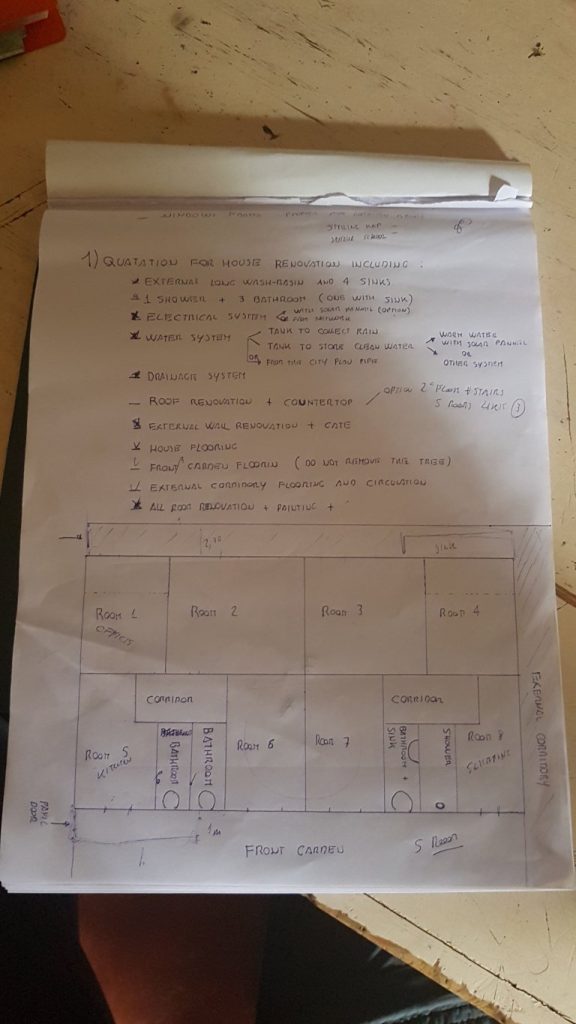 1) QUATATION FOR HOUSE RENOVATION INCLUDING :
EXTERNAL LONG WASH-BASIN AND 4 SINKS
1 SHOWER + 3 BATHROOM (ONE WITH SINK)
ELECTRICAL SYSTEM WITH SOLAR PANNEL (OPTION)
OR FROM NETWORK
WATER SYSTEM TANK TO COLLECT RAIN
TANK TO STORE CLEAN WATER WORM WATER
WITH SOLAR PANNEL
OR
OTHER SYSTEM
OR FROM THE CITY PIPE
DRAINAGE SYSTEM
– ROOF RENOVATION + COUNTERTOP OPTION 2° FLOOR + STAIRS
5 ROOMS
EXTERNAL WALL RENOVATION + GATE
HOUSE FLOORING
FRONT GARDEN FLOORIN (DO NOT REMOVE THE TREE)
EXTERNAL CORRIDORY FLOORING AND CIRCULATION
ALL ROOM RENOVATION + PAINTING +
SINK
ROOM 1
OFFICE
ROOM 2
ROOM 3
ROOM 4
CORRIDOR
CORRIDOR
ROOM 5
KITCHEN
BATHROOM
BATHROOM
ROOM 6
ROOM 7
BATHROOM +
SINK
SHOWER
ROOM 8
SLEEPING
EXTERNAL CORRIDORY
1m
FRONT GARDEN
5 ROOM